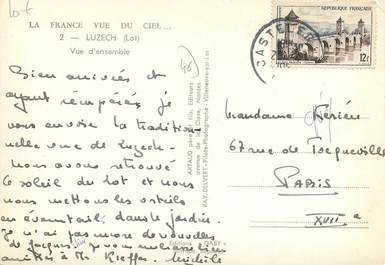 Lot
LA FRANCE VUE DU CIEL...
2 — LUZECH (Lot)
Vue d'ensemble
(46)
Bien arrivées et
ayant récupéré, je
vous envoie la tradition-
nelle vue de Luzech -
nous avons retrouvé
le soleil du Lot et nous
nous mettons les orteils
en éventail, dans le jardin.
Je n'ai pas encore de nouvelles
de Jacques.
amitiés à Mr Kieffer. Michèle
ARTAUD père et fils, Editeurs
Nantes
RAY. DELVERT - Pilote-Photographe - Villeneuve-sur-Lot
Editions "GABY"
RÉPUBLIQUE FRANÇAISE
12F
CASTEL
Madame
67 rue de Tocqueville
PARIS
XVII e